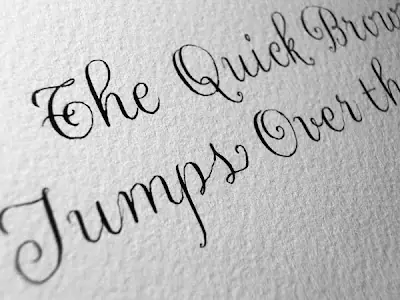 The Quick Brow
Jumps Over th